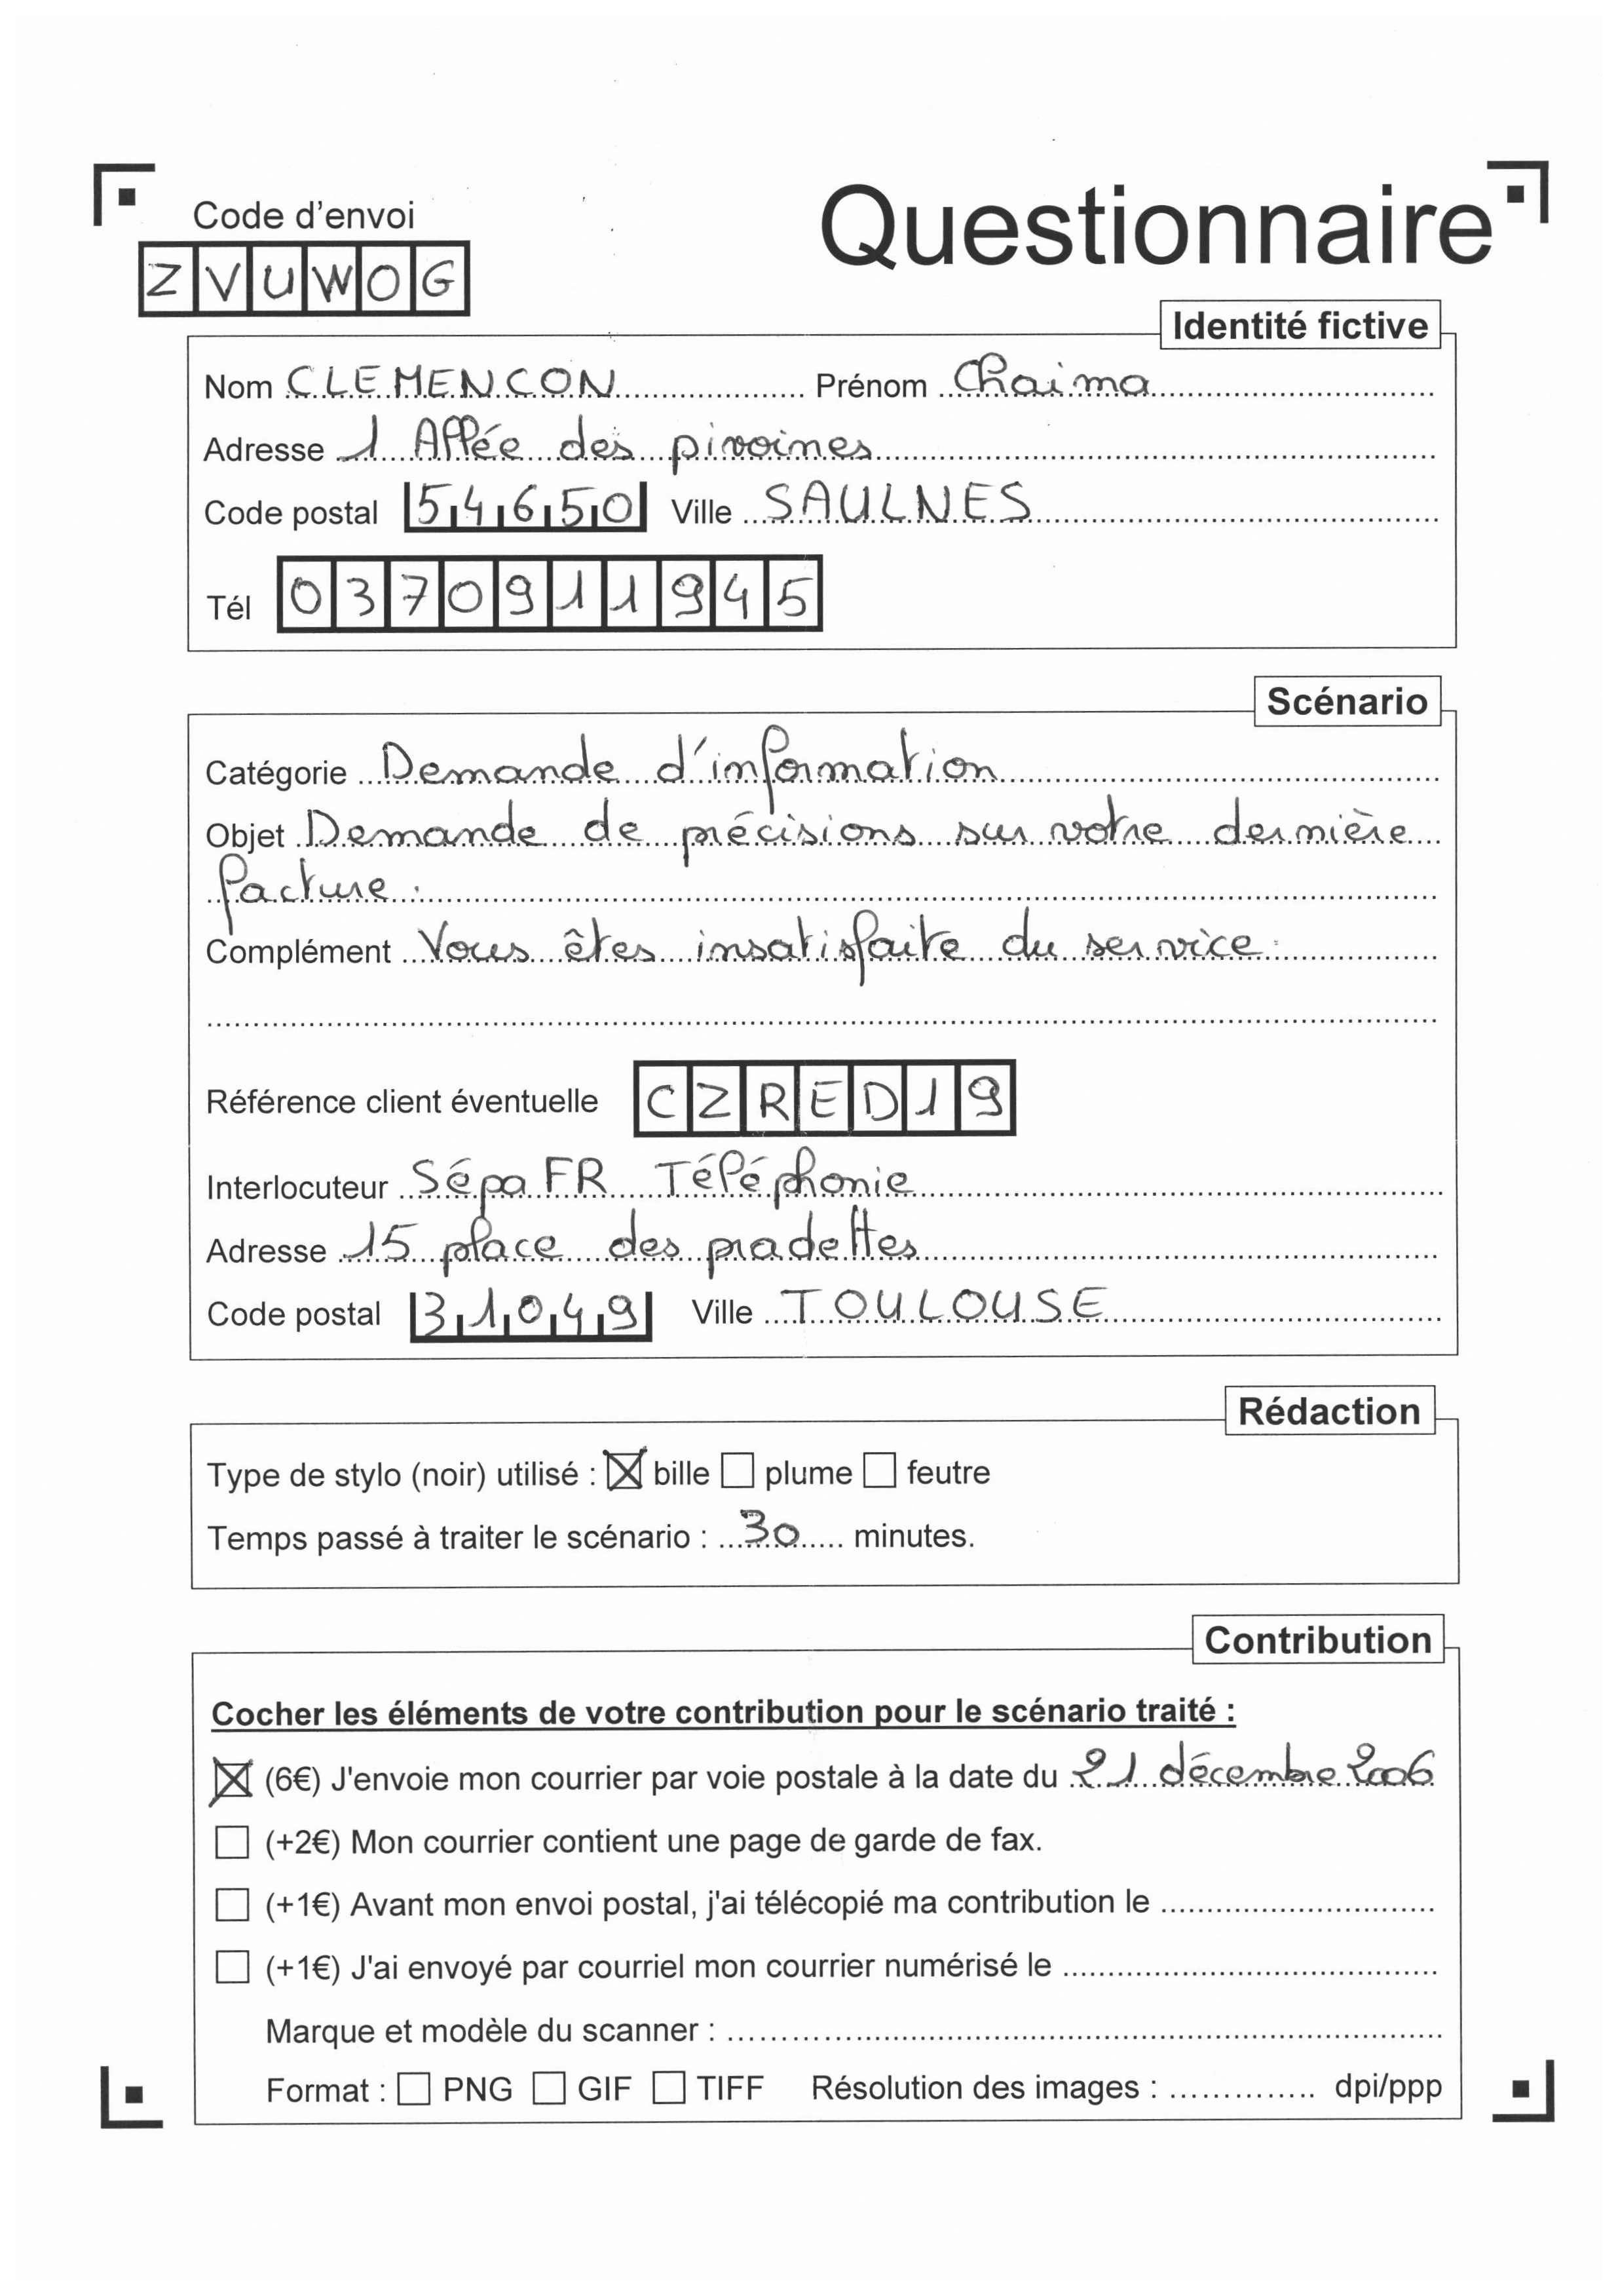 Code d'envoi
Questionnaire
ZVUWOG
Identité fictive
Nom CLEMENCON Prénom Chaima
Adresse 1 Allée des pivoines
Code postal 54650 Ville SAULNES
Tél 0370911945
Scénario
Catégorie Demande d'information
Objet Demande de précisions sur votre dernière
facture.
Complément Vous êtes insatisfaite du service.
Référence client éventuelle CZRED19
Interlocuteur Sépa FR Téléphonie
Adresse 15 place des pradettes
Code postal 31049 Ville TOULOUSE
Rédaction
Type de stylo (noir) utilisé : ☒ bille ☐ plume ☐ feutre
Temps passé à traiter le scénario : 30 minutes.
Contribution
Cocher les éléments de votre contribution pour le scénario traité :
☒ (6€) J'envoie mon courrier par voie postale à la date du 21 décembre 2006
☐ (+2€) Mon courrier contient une page de garde de fax.
☐ (+1€) Avant mon envoi postal, j'ai télécopié ma contribution le
☐ (+1€) J'ai envoyé par courriel mon courrier numérisé le
Marque et modèle du scanner :
Format : ☐ PNG ☐ GIF ☐ TIFF Résolution des images : dpi/ppp